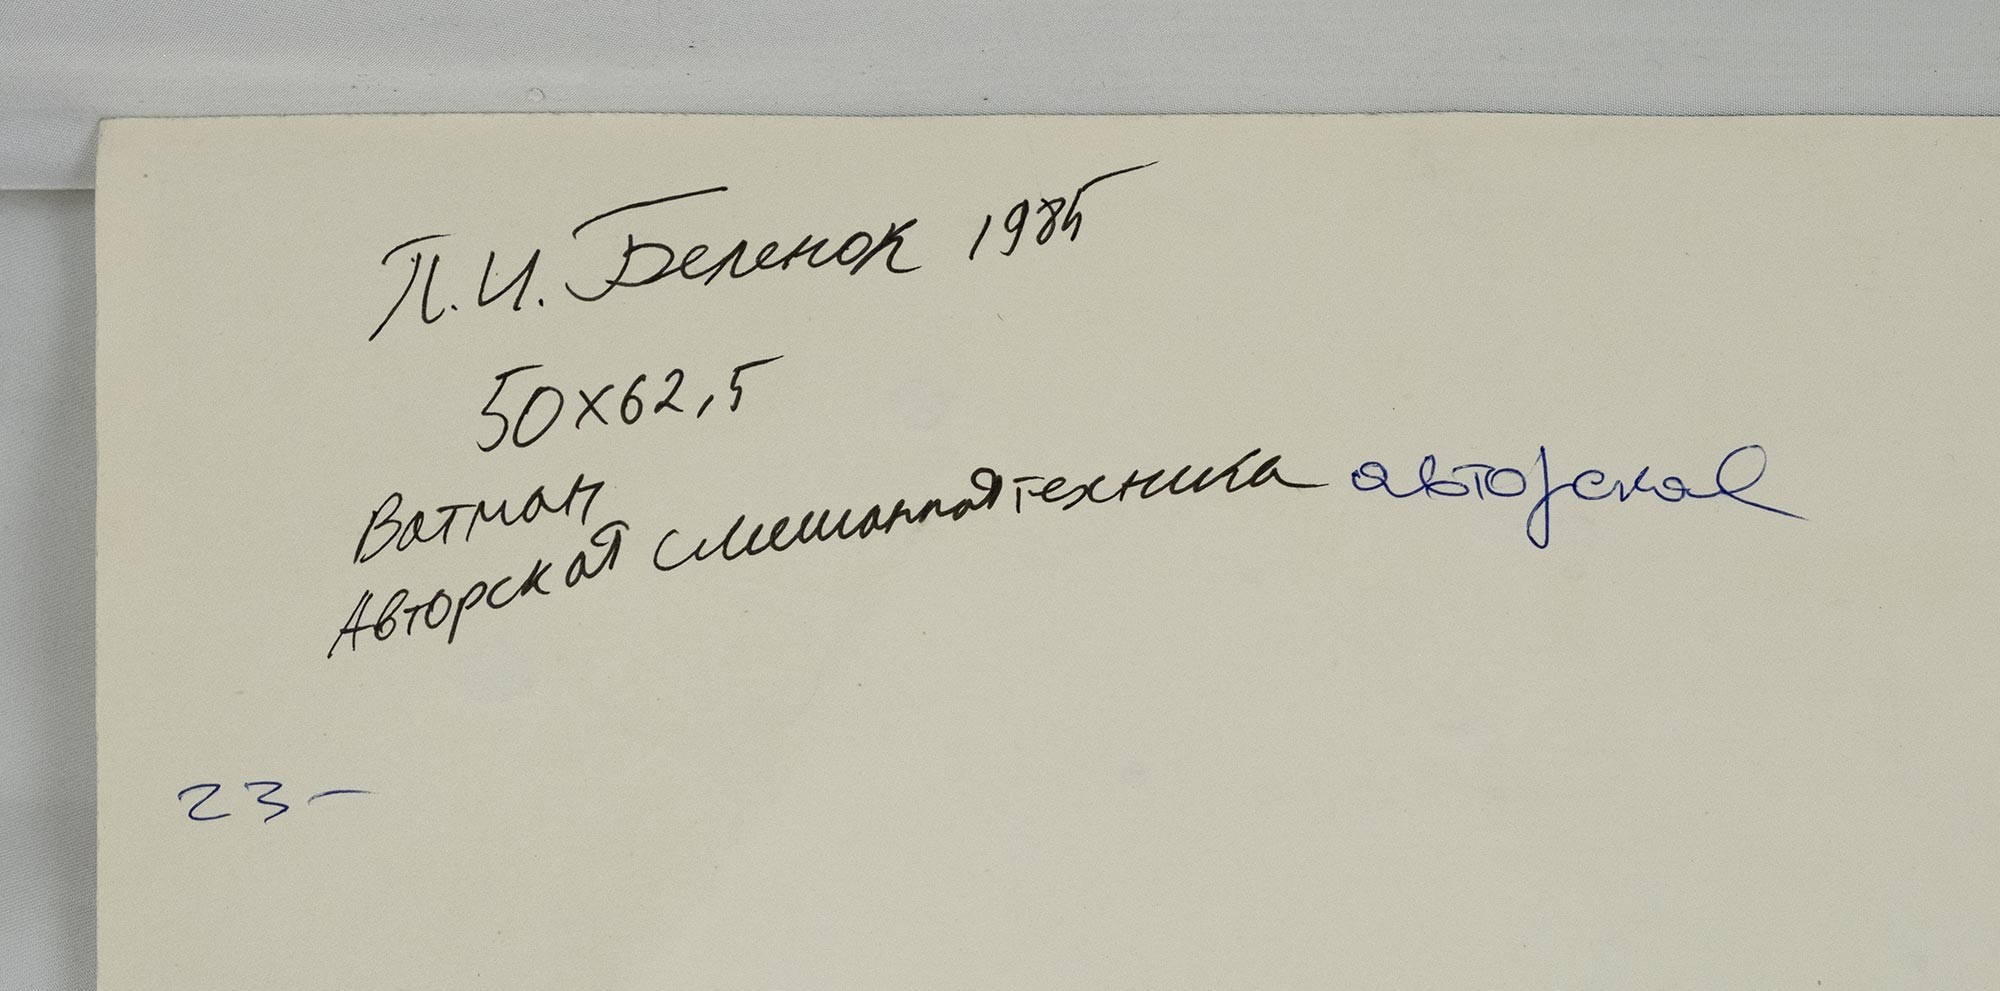 П.И. Беленок 1985
50х62,5
Ватман
Авторская смешанная техника авторская
23-